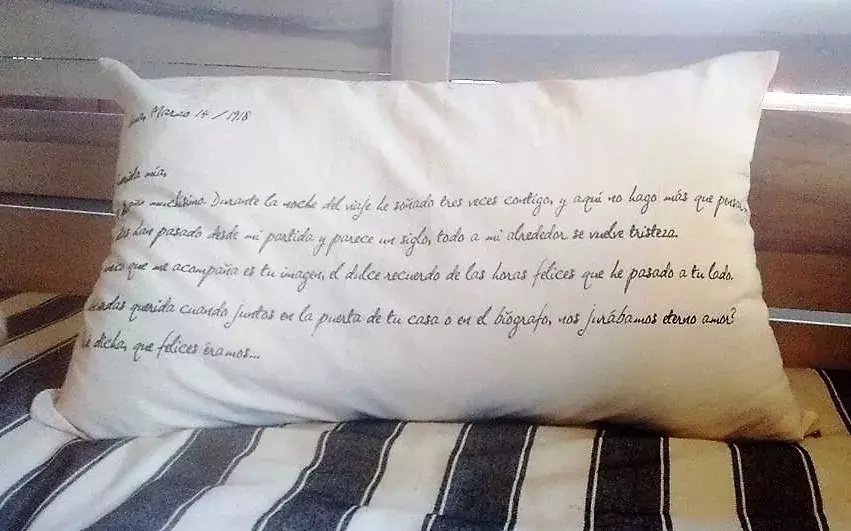 Marzo 14/1918
mía,
muchísimo. Durante la noche del viaje he soñado tres veces contigo, y aquí no hago más que
han pasado desde mi partida y parece un siglo, todo a mi alrededor se vuelve tristeza.
que me acompaña es tu imagen, el dulce recuerdo de las horas felices que he pasado a tu lado.
querida cuando juntos en la puerta de tu casa o en el biógrafo, nos jurábamos eterno amor?
dicha, que felices éramos...